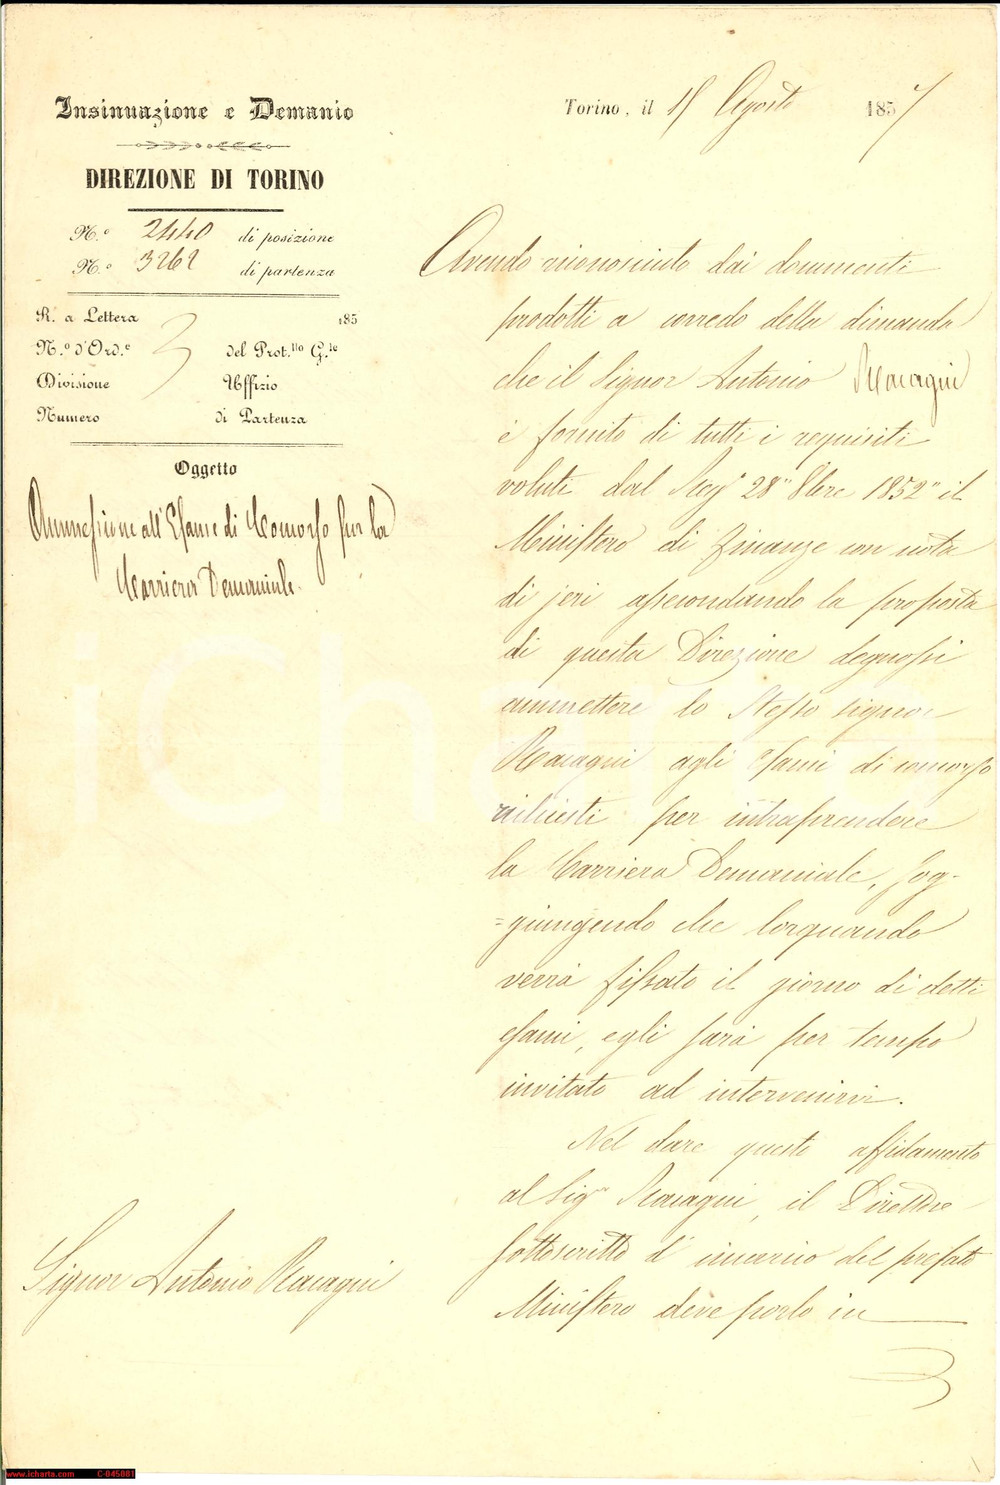 Insinuazione e Demanio
DIREZIONE DI TORINO
N.o 2440 di posizione
N.o 3262 di partenza
R. a Lettera 185
N.o d'Ord.e del Prot.llo G.le
Divisione Uffizio
Numero di Partenza
Oggetto
Ammessione all'Esame di Concorso per la
Carriera Demaniale.
Torino, il Agosto 1857
Avendo riconosciuto dai documenti
prodotti a corredo della dimanda
che il Signor Antonio Racagni
è fornito di tutti i requisiti
voluti dal Reg.o 28" 8bre 1852" il
Ministero di Finanze con nota
di jeri assecondando la proposta
di questa Direzione degnossi
ammettere lo stesso signor
Racagni agli esami di concorso
richiesti per intraprendere
la Carriera Demaniale, sog-
=giungendo che lorquando
verrà fissato il giorno di detti
esami, egli sarà per tempo
invitato ad intervenirvi.
Nel dare questo affidamento
al Sig.r Racagni, il Direttore
sottoscritto d'incarico del prefato
Ministero deve porlo in
Signor Antonio Racagni
iCharta
www.icharta.com C-045881